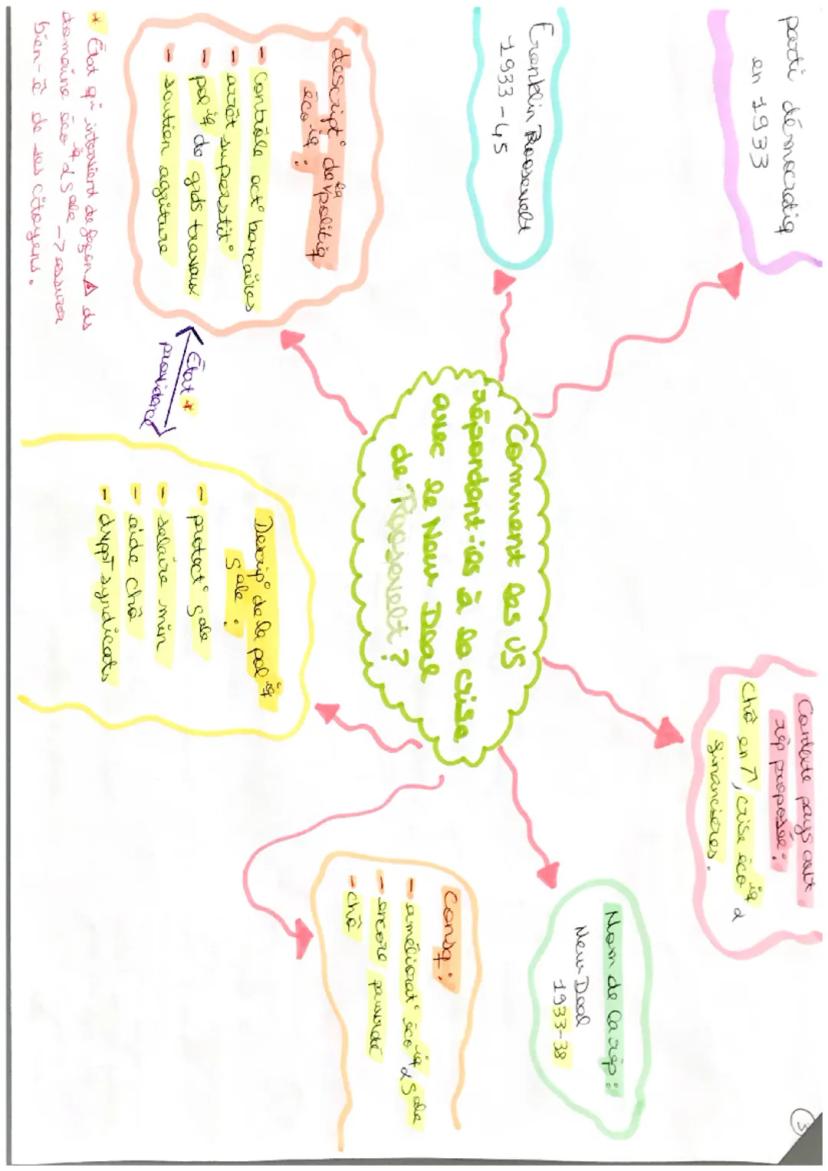 parti démocratiq
en 1933
Franklin Roosevelt
1933-45
descript° de la politiq
éco iq :
- Contrôle act° bancaires
- arrêt superstit°
- pol iq de gds travaux
- soutien agriture
État *
providence
* État q intervient de façon ds
domaine éco iq & Sale -> assurer
bien-ê de ses citoyens.
Comment les US
répondent-ils à la crise
avec le New Deal
de Roosevelt ?
Descrip° de la pol iq
Sale :
- protect° Sale
- salaire min
- aide chô
- dvppt syndicats
Contexte pays avt
rép proposée :
Chô en ↗, crise éco iq &
financières.
Nom de la rép :
New Deal
1933-38
Consq :
- améliorat° éco iq & Sale
- encore pauvreté
- chô
3